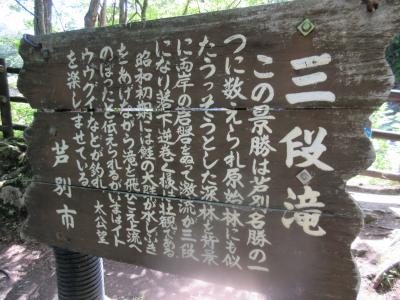 三段滝
この景勝は芦別名勝の一
つに数えられ原始林にも似
たうっそうとした深林を背景
に両岸の岩盤をぬって激流が三段
になり落下逆巻く様は壮観である
昭和初期には鮭の大群が水しぶき
をあげながら滝を飛びこえ上流へ
のぼったと伝えられるがいまはイト
ウウグイなどが釣れ太公望
を楽しませている
芦別市